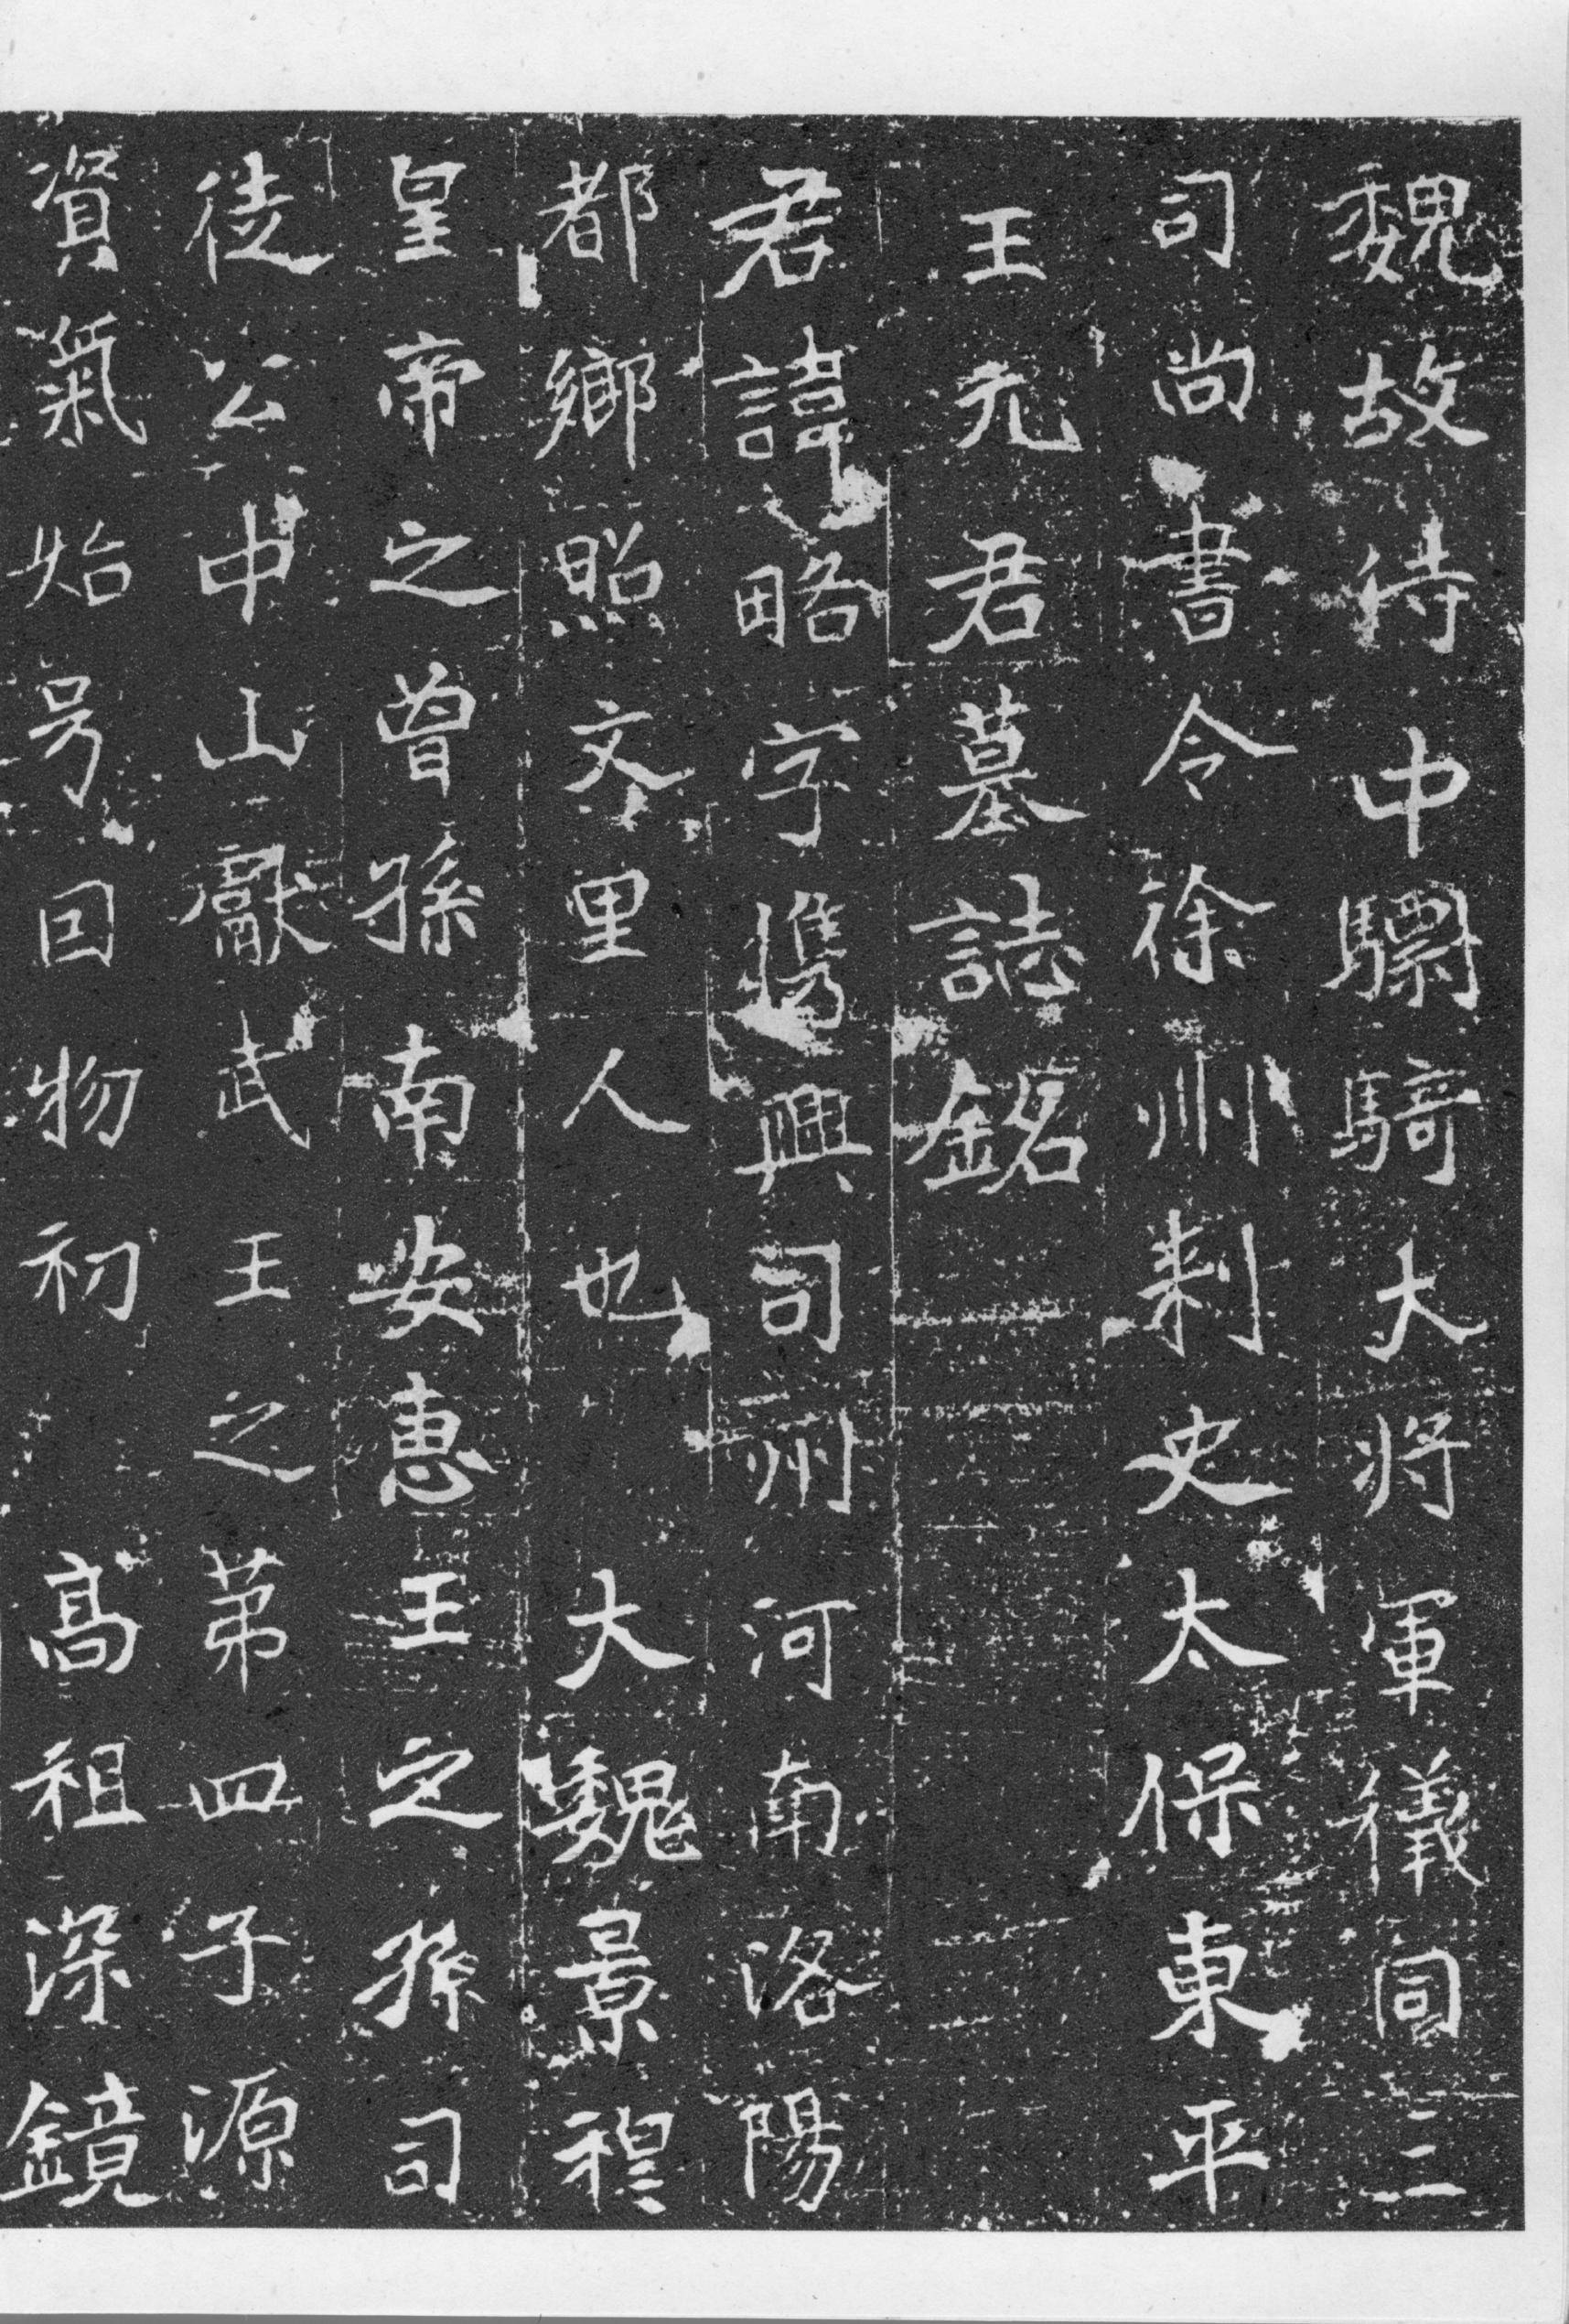 魏故侍中驃騎大將軍儀同三
司尚書令徐州刺史太保東平
王元君墓誌銘
君諱略字儁興司州河南洛陽
都鄉照文里人也 大魏景穆
皇帝之曾孫南安惠王之孫司
徒公中山獻武王之第四子源
資氣始号因物初 高祖深鏡